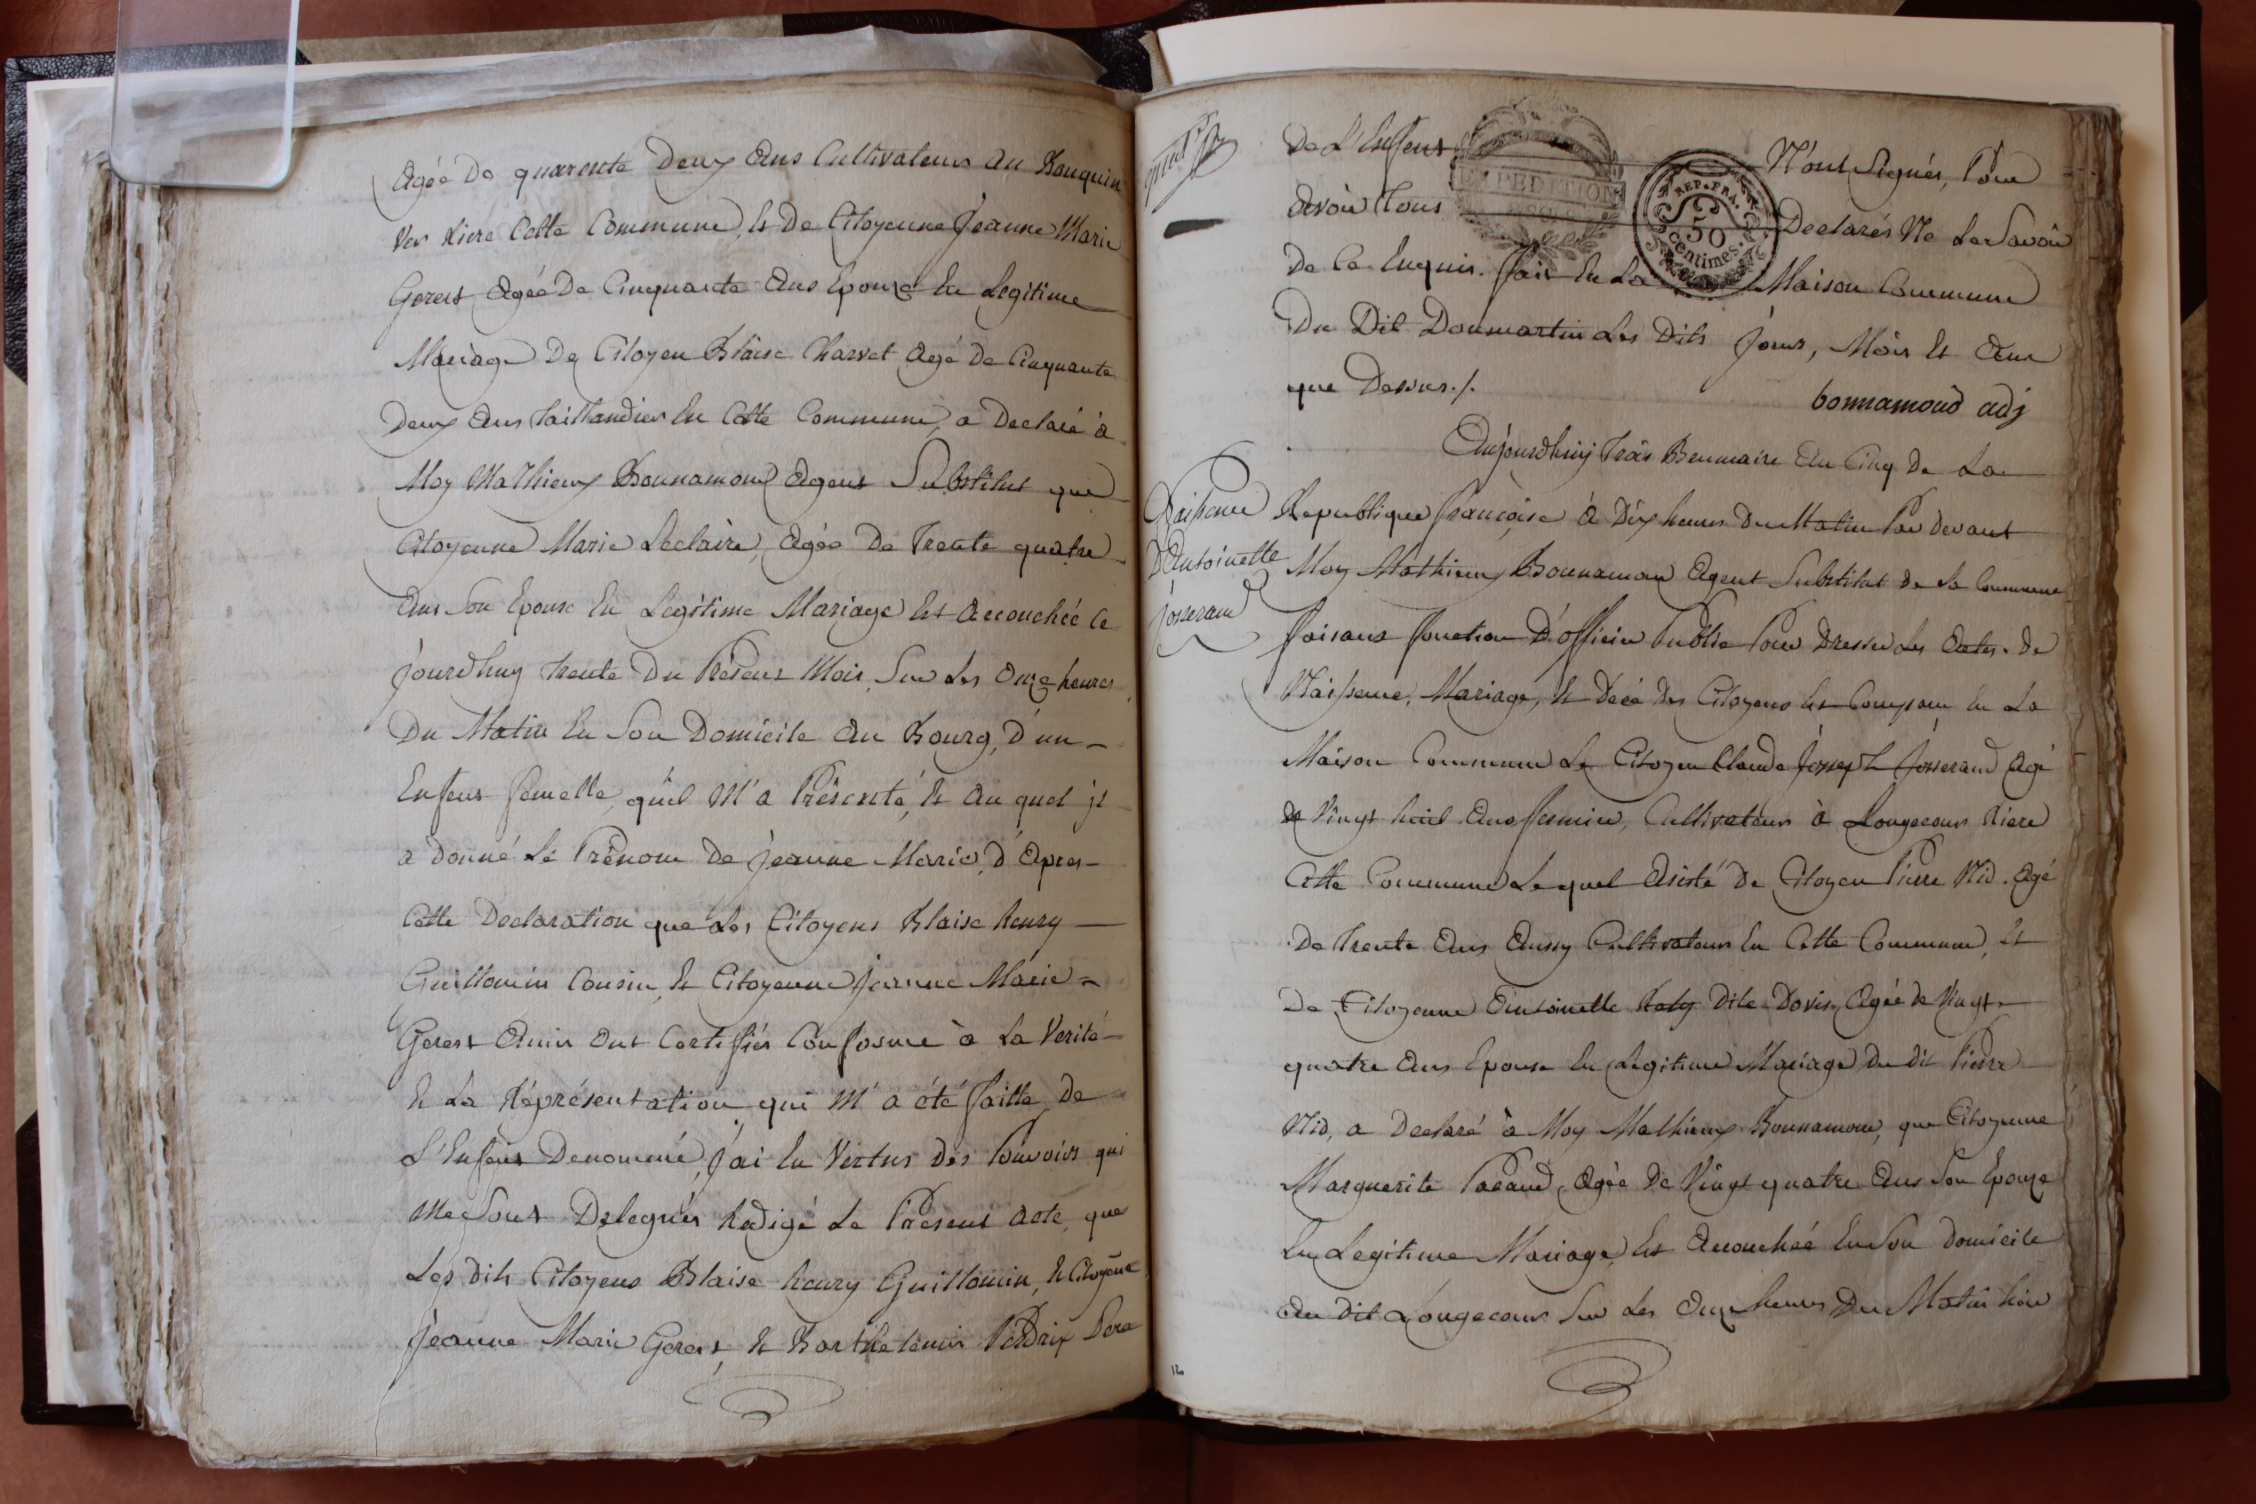 Agée De quarente Deux Ans Cultivateurs Au Bouquin
Ver Riere Cette Commune, Et De Citoyenne Jeanne Marie
Gerest Agée De Cinquante Ans Epouze En Legitime
Mariage De Citoyen Blaise Charvet Agé De Cinquante
Deux Ans taillandier En Cette Commune, a Declaré à
Moy Mathieux Bonnamour Agent Substitut que
Citoyenne Marie Leclaire, Agée De Trente quatre
Ans Son Epouse En Legitime Mariage Est Accouchée Ce
jourdhuy trente Du Présent Mois, Sur Les Onze heures
Du Matin En Son Domicile Au Bourg, D'un
Enfent femelle, qu'il M'a Présenté, Et Au quel jl
a Donné Le Prénom De Jeanne Marie, D'Apres
Cette Declaration que Les Citoyens Blaise henry
Guillomin Cousin, Et Citoyenne Jeanne Marie
Gerest Amis Ont Certifiés Conforme à La Verité
Et La Réprésentation qui M'a été faitte De
L'Enfent Denommé, J'ai En Vertus Des Pouvoirs qui
Me Sont Delegués Redigé Le Présent Acte, que
Les Dits Citoyens Blaise henry Guillomin, Et Citoyene
Jeanne Marie Gerest, Et Barthelemis Perdrix Pere
De L'Enfent N'ont Signés, Pour
Avoir Tous Declarés Ne Le Savoir
De Ce Enquis. fait En La Maison Commune
Du Dit Dommartin Les Dits Jours, Mois Et An
que Dessus./.
bonnamour adj
EXPEDITION
REP. FRA.
50
Centimes.
Naissance
D'Antoinette
Josserand
Aujourdhuy trois Brumaire An Cinq De La
Republique françoise à Dix heures Du Matin Par Devant
Moy Mathieux Bonnamour Agent Substitut de La Commune
faisant fonction D'officier Public Pour Dresser Les Actes De
Naissance, Mariage, Et Décé Des Citoyens Est Comparu En La
Maison Commune Le Citoyen Claude Joseph Josserand Agé
de Vingt huit Ans fermier, Cultivateur à Longecour Riere
Cette Commune Le quel Assisté De Citoyen Pierre Nid. Agé
De Trente Ans Aussy Cultivateur En Cette Commune, Et
De Citoyenne Antoinette Dite Agée De Vingt
quatre Ans Epouse En Legitime Mariage Du dit Pierre
Nid, a Declaré à Moy Mathieux Bonnamour, que Citoyenne
Marguerite Agée De Vingt quatre Ans Son Epouze
En Legitime Mariage Est Accouchée En Son Domicile
Au dit Longecour Sur Les Onze heures Du Matin hier